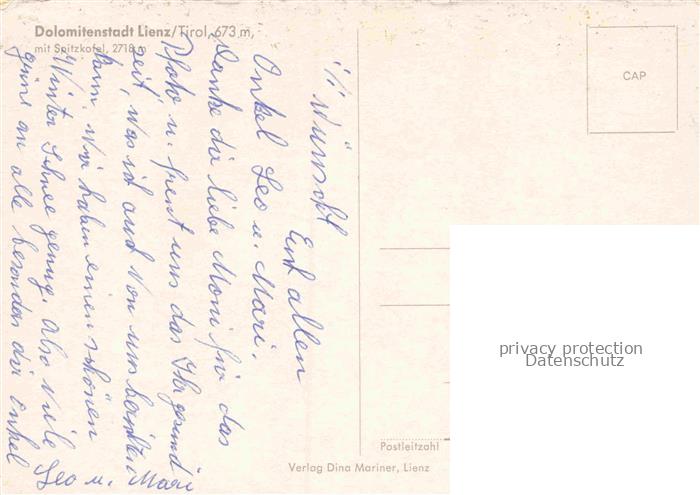 Dolomitenstadt Lienz/Tirol, 673 m,
mit Spitzkofel, 2718 m
CAP
wünscht Euch allen
Onkel Leo u. Mari.
Danke dir liebe Moni für das
Photo u. freut uns das Ihr gesund
seit, was ich auch von uns
kann. Wir haben einen schönen
Winter Schnee genug. Also viele
grüns an alle besonders dir Onkel
Leo u. Mari
privacy protection
Datenschutz
Postleitzahl
Verlag Dina Mariner, Lienz